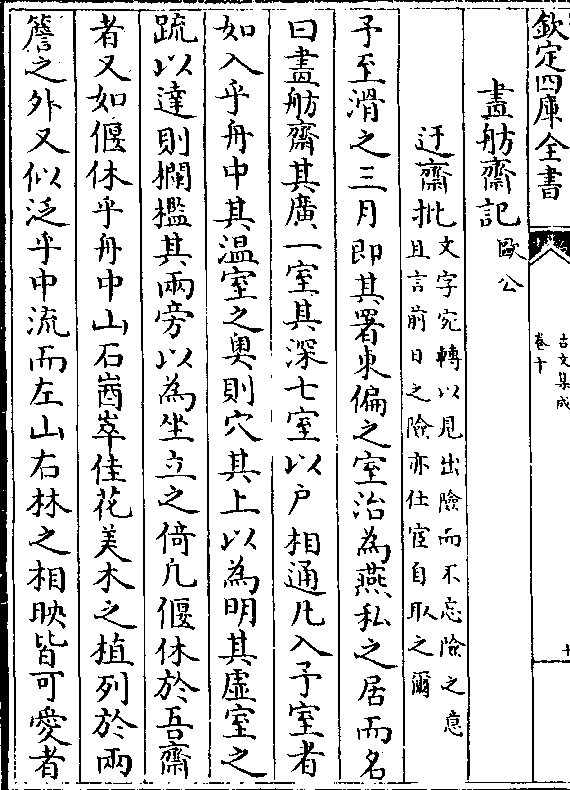 欽定四庫全書
古文集成
卷十
畫舫齋記 歐公
迂齋批 文字宛轉以見出險而不忘險之意
且言前日之險亦仕宦自取之爾
予至滑之三月即其署東偏之室治為燕私之居而名
曰畫舫齋其廣一室其深七室以户相通凡入予室者
如入乎舟中其温室之奥則穴其上以為明其虚室之
疏以達則欄檻其兩旁以為坐立之倚凡偃休於吾齋
者又如偃休乎舟中山石崷崒佳花美木之植列於兩
簷之外又似泛乎中流而左山右林之相映皆可愛者